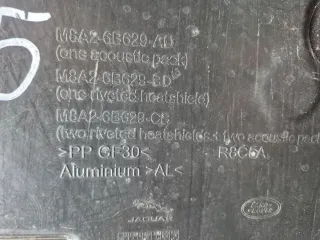 5
M8A2-6B629-AD
(one acoustic pack)
M8A2-6B629-BD
(one riveted heatshield)
M8A2-6B629-CB
(two riveted heatshields & two acoustic pac
>PP GF30<
Aluminium >AL<
JAGUAR